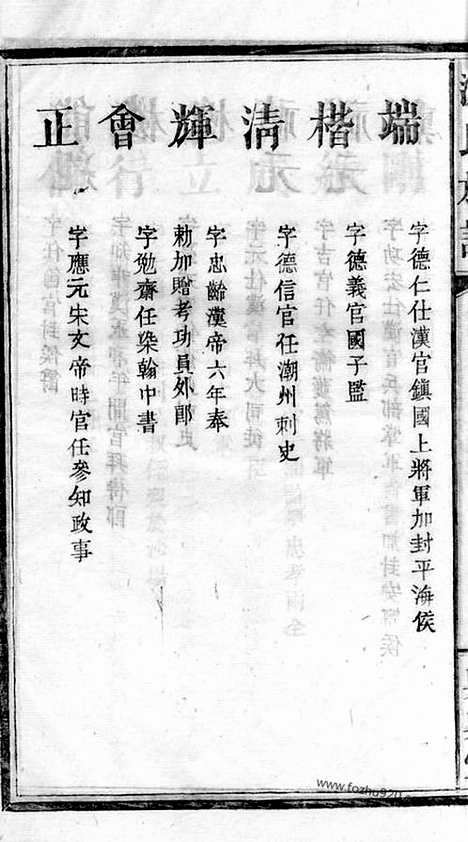 端
字德仁仕漢官鎮國上將軍加封平海侯
楷
字德義官國子監
清
字德信官任潮州刺史
輝
字忠齡漢帝六年奉
勅加贈考功員外郎
會
字勉齋任梁翰中書
正
字應元宋文帝時官任參知政事